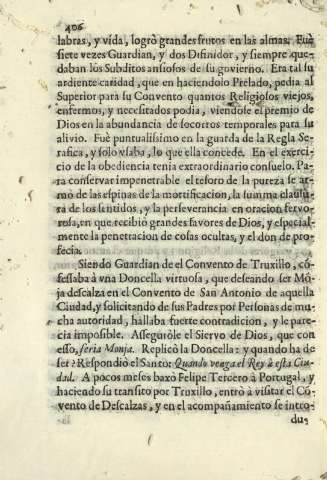 406
labras, y vida, logrò grandes frutos en las almas. Fuè
siete vezes Guardian, y dos Disinidor, y siempre que-
daban los Subditos ansiosos de su govierno. Era tal su
ardiente caridad, que en haciendolo Prelado, pedia al
Superior para su Convento quantos Religiosos viejos,
enfermos, y necesitados podia, viendose el premio de
Dios en la abundancia de socorros temporales para su
alivio. Fuè puntualissimo en la guarda de la Regla Se-
rafica, y solo vsaba, lo que ella concede. En el exerci-
cio de la obediencia tenia extraordinario consuelo. Pa-
ra conservar impenetrable el tesoro de la pureza se ar-
mò de las espinas de la mortificacion, la summa clausu-
ra de los sentidos, y la perseverancia en oracion fervo-
rosa, en que recibiò grandes favores de Dios, y especial-
mente la penetracion de cosas ocultas, y el don de pro-
fecia.
Siendo Guardian de el Convento de Truxillo, cõ-
fessaba à vna Doncella virtuosa, que deseando ser Mõ-
ja descalza en el Convento de San Antonio de aquella
Ciudad, y solicitando de sus Padres por Personas de mu-
cha autoridad, hallaba fuerte contradicion, y le pare-
cia imposible. Asseguròle el Siervo de Dios, que con
esso, seria Monja. Replicò la Doncella: y quando ha de
ser? Respondiò el Santo: Quando venga el Rey à esta Ciu-
dad. A pocos meses baxò Felipe Tercero à Portugal, y
haciendo su transito por Truxillo, entrò à visitar el Cõ-
vento de Descalzas, y en el acompañamiento se intro-
du-